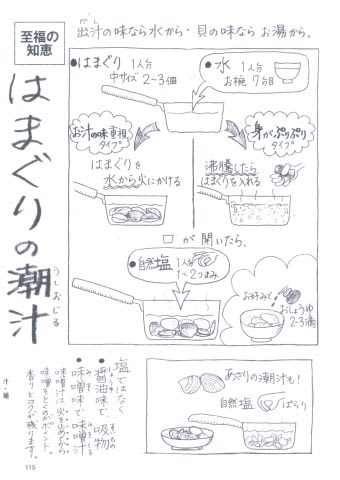 出汁の味なら水から・貝の味ならお湯から。
だし
至福の
知恵
はまぐりの潮汁
うしおじる
●はまぐり 1人分
中サイズ 2〜3個
●水 1人分
お椀 7分目
お汁の味重視
タイプ
身がぷりぷり
タイプ
はまぐりを
水から火にかける
沸騰したら
はまぐりを入れる
口が開いたら、
●自然塩 1人分
1〜2つまみ
お好みで
おしょうゆ
2-3滴
塩ではなく
●醤油味で、吸物
すいもの
●味噌味で味噌汁
味噌汁は火を止めてから
味噌をとくのがポイント。
香りとコクが残ります。
あさりの潮汁も!
自然塩
ぱらり
汁・麺
115